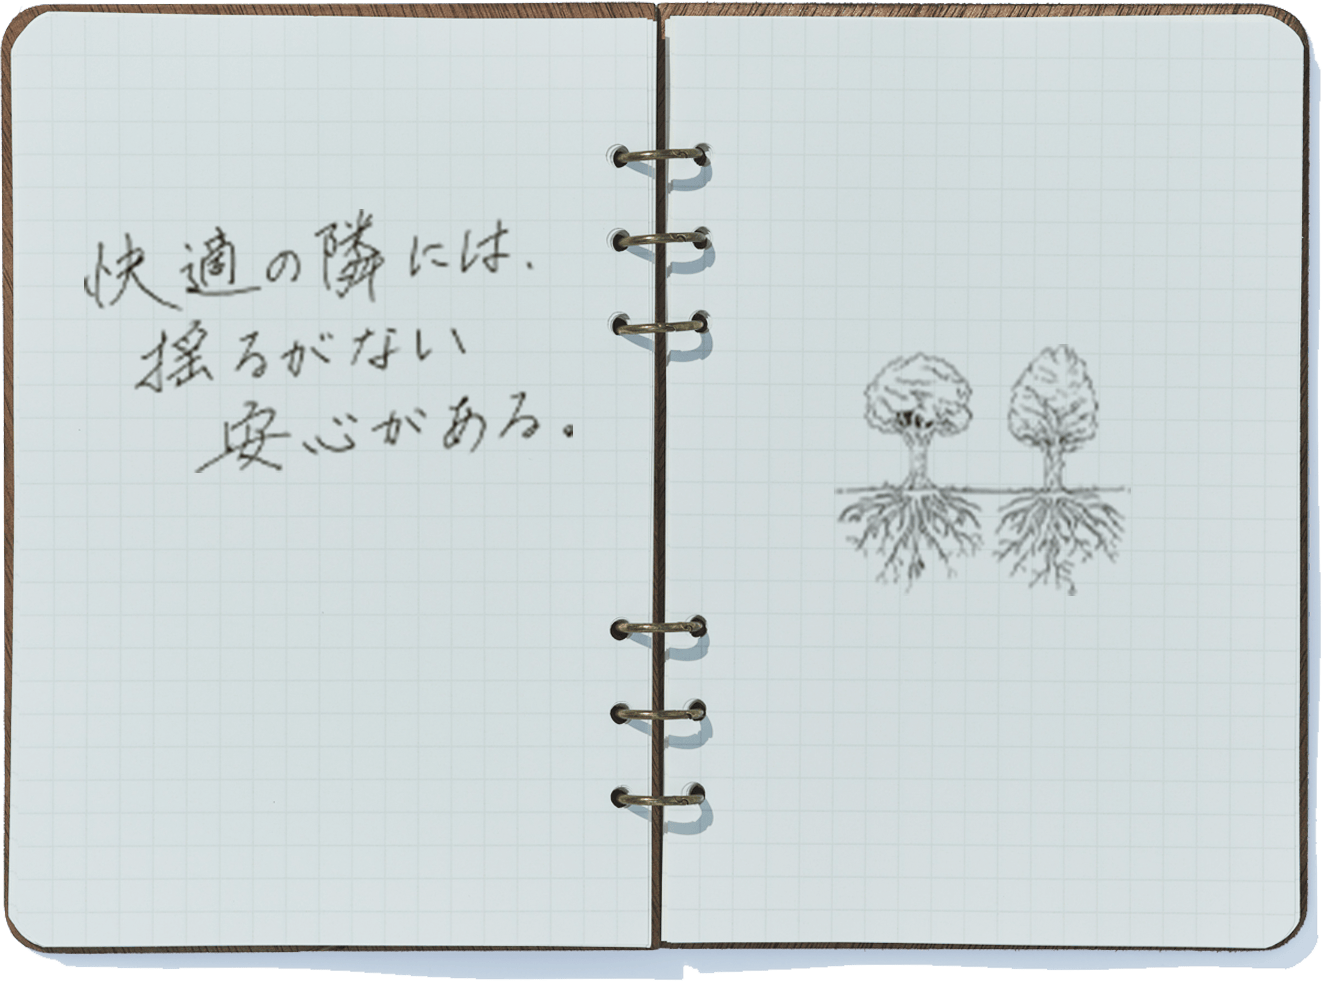 快適の隣には、
揺るがない
安心がある。